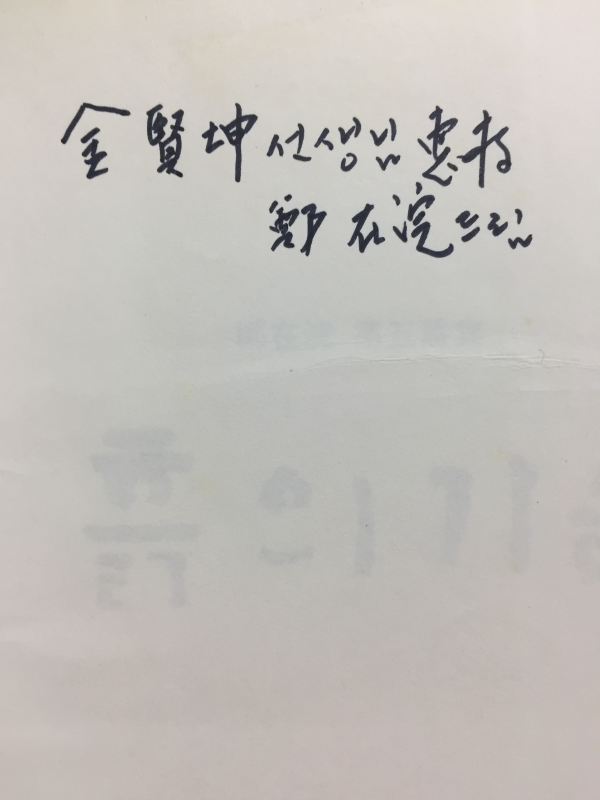 金賢坤 선생님 惠存
鄭在浣 드림